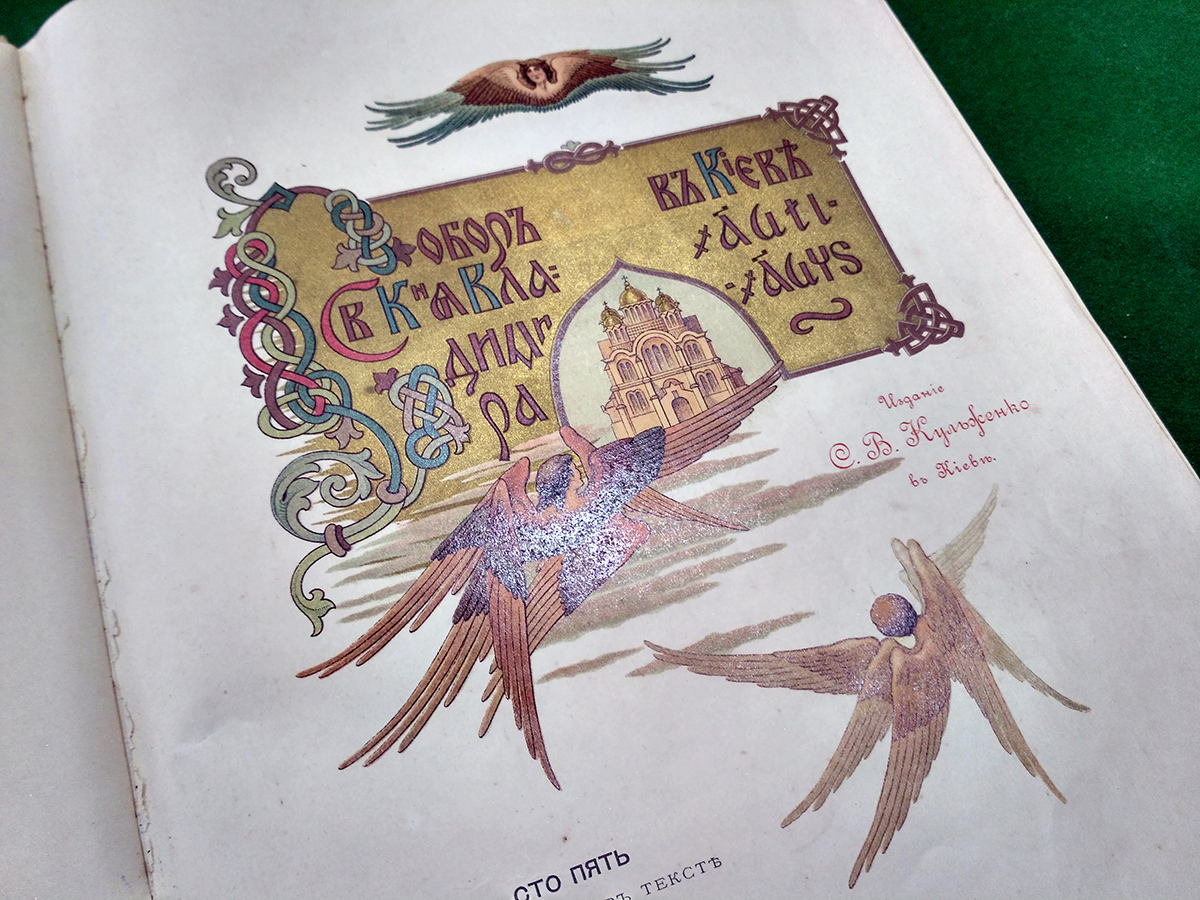 Соборъ
Св Кнѧ Вла=
димı
ра
въ Кіевѣ
Изданіе
С. В. Кульженко
въ Кіевѣ.
СТО ПЯТЬ
ТЕКСТѢ